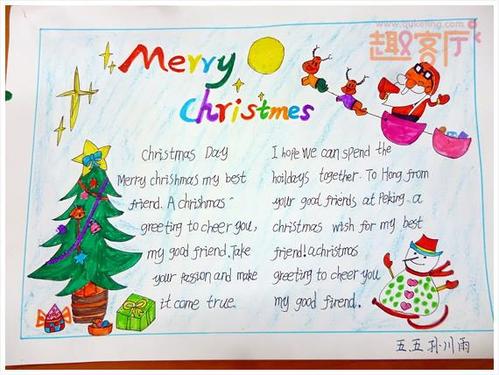 www.quketing.com
趣客厅
Merry
christmes
christmas Day
Merry chrishmas my best
friend. A chrishmas
greeting to cheer you,
my good friend, Take
your Passion and make
it come true.
I hope we can spend the
haildays together. To Hong from
your good friends at Peking. a
christmas wish for my best
friend! a christmas
greeting to cheer you
my good firend.
五.五孙川雨